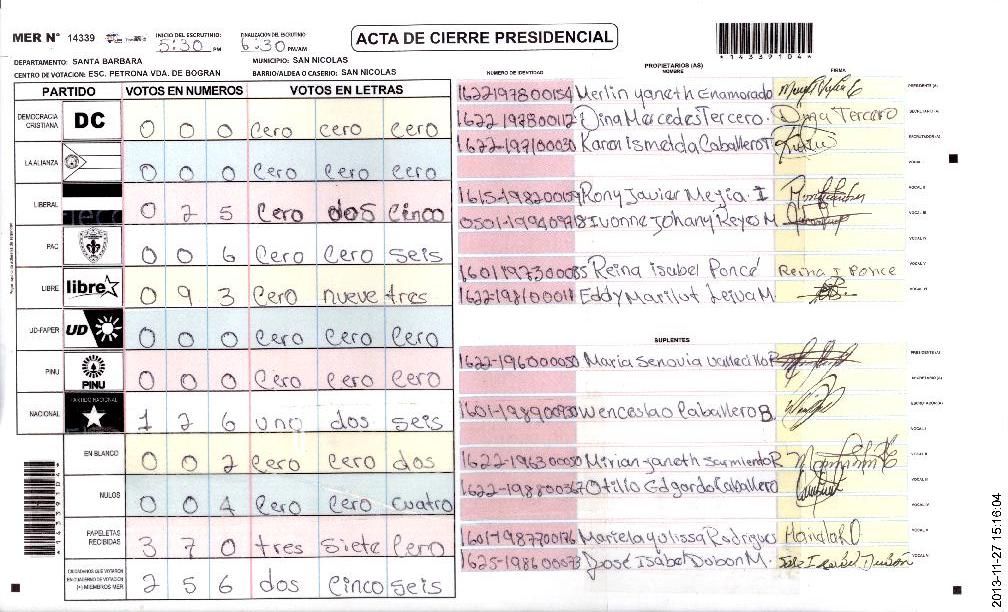 MER N° 14339
INICIO DEL ESCRUTINIO: 5:30 PM
FINALIZACION DEL ESCRUTINIO 6:30 PM/AM
ACTA DE CIERRE PRESIDENCIAL
*14339104*
DEPARTAMENTO: SANTA BARBARA
MUNICIPIO: SAN NICOLAS
CENTRO DE VOTACION: ESC. PETRONA VDA. DE BOGRAN
BARRIO/ALDEA O CASERIO: SAN NICOLAS
PARTIDO VOTOS EN NUMEROS VOTOS EN LETRAS
DEMOCRACIA CRISTIANA DC 0 0 0 Cero cero cero
LA ALIANZA 0 0 0 Cero cero cero
LIBERAL 0 2 5 Cero dos Cinco
PAC 0 0 6 Cero Cero seis
LIBRE libre 0 9 3 Cero nueve tres
UD-FAPER UD 0 0 0 Cero Cero Cero
PINU PINU 0 0 0 Cero Cero Cero
NACIONAL PARTIDO NACIONAL 1 2 6 uno dos seis
EN BLANCO 0 0 2 Cero Cero dos
NULOS 0 0 4 Cero Cero Cuatro
PAPELETAS RECIBIDAS 3 7 0 tres siete Cero
CIUDADANOS QUE VOTARON EN CUADERNO DE VOTACION (+) MIEMBROS MER 2 5 6 dos Cinco seis
*14339104*
NUMERO DE IDENTIDAD
PROPIETARIOS (AS)
NOMBRE
FIRMA
1622197800154 Merlin yaneth Enamorado PRESIDENTE (A)
1622-197800112 Dina Mercedes Tercero. Dina Tercero SECRETARIO (A)
1622-197100030 Karen Ismelda Caballero T ESCRUTADOR (A)
VOCAL I
1615-198200159 Rony Javier Mejia. I VOCAL II
0501-199409718 Ivonne Johany Reyes M VOCAL III
VOCAL IV
1601197300085 Reina isabel Ponce Reina I Ponce VOCAL V
1622-198100011 Eddy Marilut Leiva M. VOCAL VI
SUPLENTES
1622-196000050 Maria Senovia Vallecillo R PRESIDENTE (A)
SECRETARIO (A)
1601-198900930 Wenceslao Caballero B. ESCRUTADOR (A)
VOCAL I
1622-196300050 Mirian Janeth Sarmiento R VOCAL II
1622-198800367 Otilio Edgardo Caballero VOCAL III
VOCAL IV
1601-198770076 Mariela yulissa Rodrigues VOCAL V
1625-198600073 Jose Isabel Dubon M. Jose Isabel Dubón VOCAL VI
2013-11-27 15:16:04